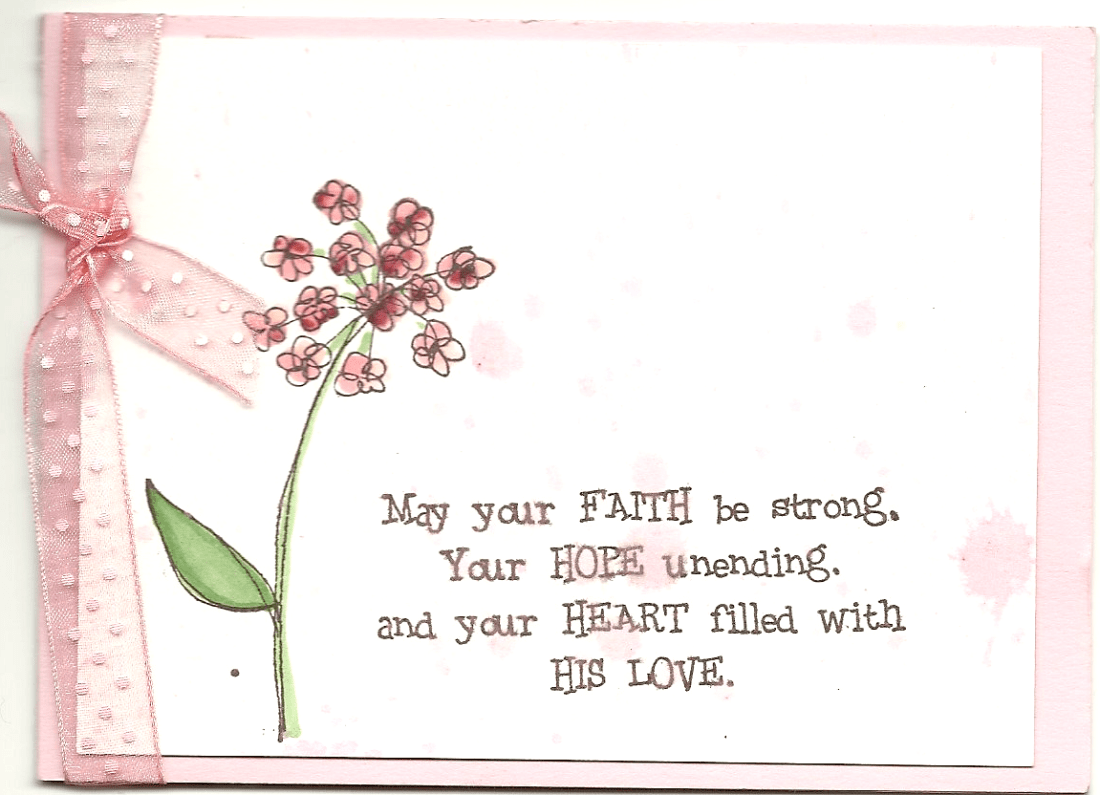 May your FAITH be strong.
Your HOPE unending.
and your HEART filled with
HIS LOVE.